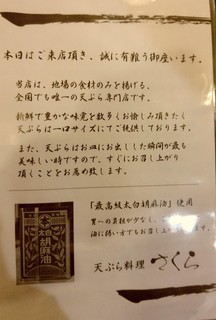 本日はご来店頂き、誠に有難う御座います。
当店は、地場の食材のみを揚げる、
全国でも唯一の天ぷら専門店です。
新鮮で豊かな味覚を数多くお愉しみ頂きたく
天ぷらは一口サイズにてご提供しております。
また、天ぷらはお皿にお出しした瞬間が最も
美味しい時ですので、すぐにお召し上がり
頂くことをお薦め致します。
「最高級太白胡麻油」使用
胃への負担が少なく、
油に弱い方でもお召し上
天ぷら料理 さくら
太白胡麻油